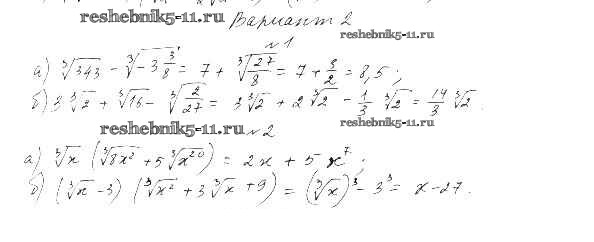 reshebnik5-11.ru Вариант 2
reshebnik5-11.ru
№1
а) ∛343 - ∛(-3 3/8) = 7 + ∛(27/8) = 7 + 3/2 = 8,5;
б) 3∛2 + ∛16 - ∛(2/27) = 3∛2 + 2∛2 - 1/3 ∛2 = 14/3 ∛2.
reshebnik5-11.ru №2
reshebnik5-11.ru
а) ∛x (∛(8x²) + 5∛(x²⁰)) = 2x + 5x⁷;
б) (∛x - 3) (∛(x²) + 3∛x + 9) = (∛x)³ - 3³ = x - 27.